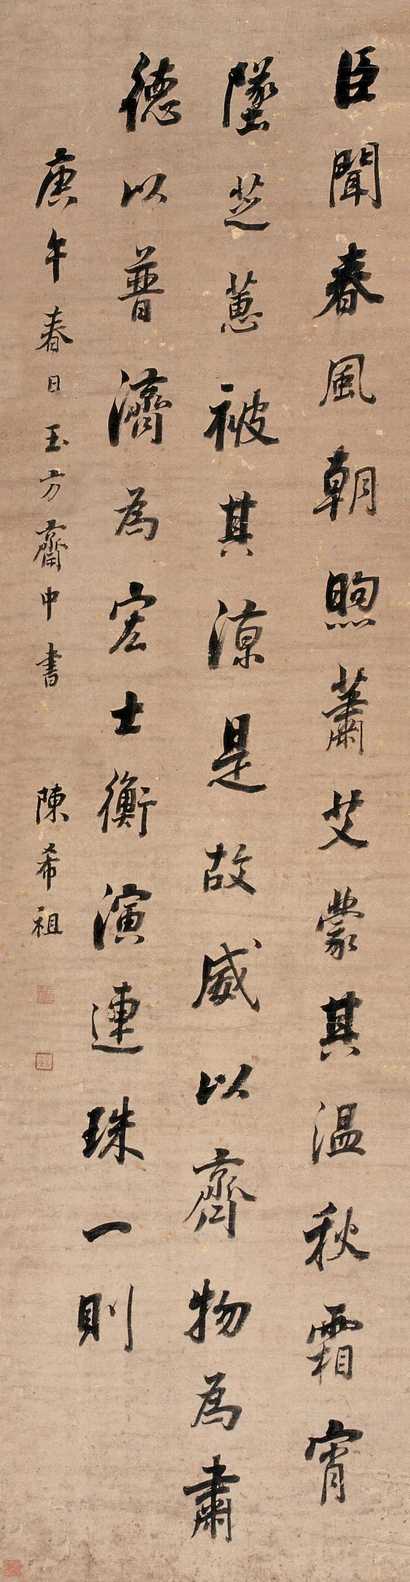 臣聞春風朝煦蕭艾蒙其温秋霜宵
墜芝蕙被其涼是故威以齊物為肅
德以普濟為宏士衡演連珠一則
庚午春日玉方齋中書 陳希祖